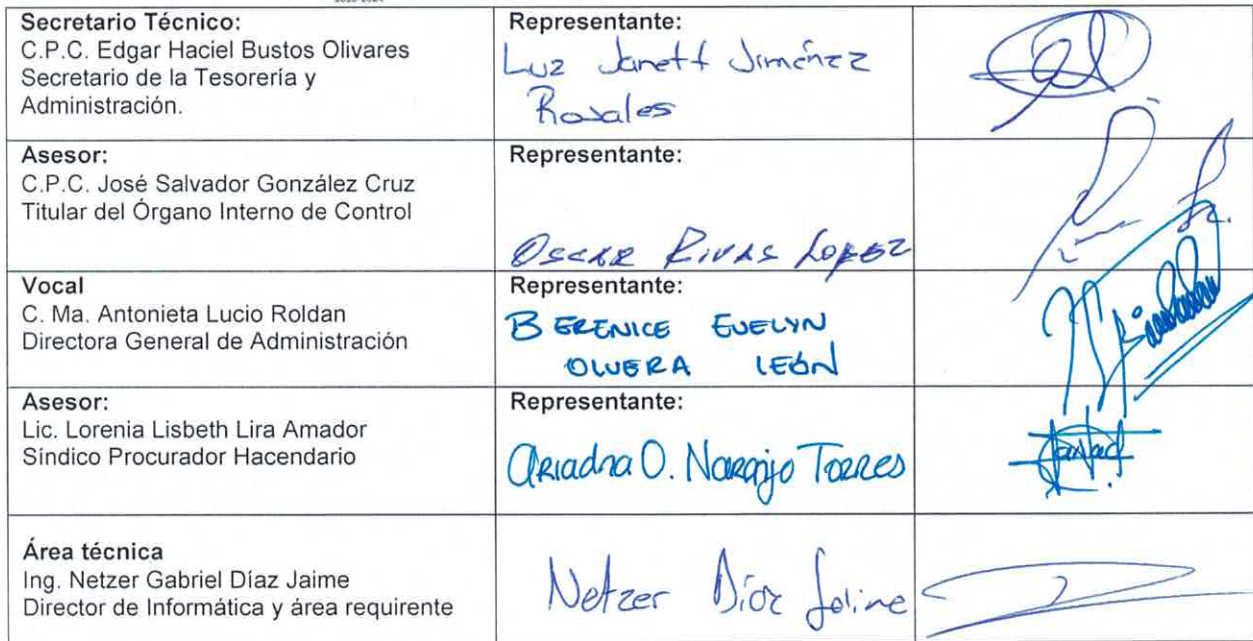 Secretario Técnico:
C.P.C. Edgar Haciel Bustos Olivares
Secretario de la Tesorería y
Administración.
Representante:
Luz Janett Jiménez
Rosales
Asesor:
C.P.C. José Salvador González Cruz
Titular del Órgano Interno de Control
Representante:
OSCAR RIVAS LOPEZ
Vocal
C. Ma. Antonieta Lucio Roldan
Directora General de Administración
Representante:
BERENICE EVELYN
OLVERA LEÓN
Asesor:
Lic. Lorenia Lisbeth Lira Amador
Síndico Procurador Hacendario
Representante:
Ariadna O. Naranjo Torres
Área técnica
Ing. Netzer Gabriel Díaz Jaime
Director de Informática y área requirente
Netzer Díaz Jaime